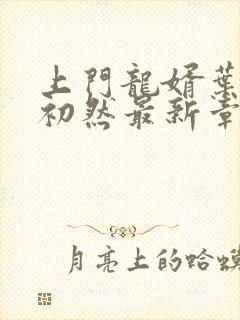 上門龍婿葉
初然最新章
月亮上的蛤蟆